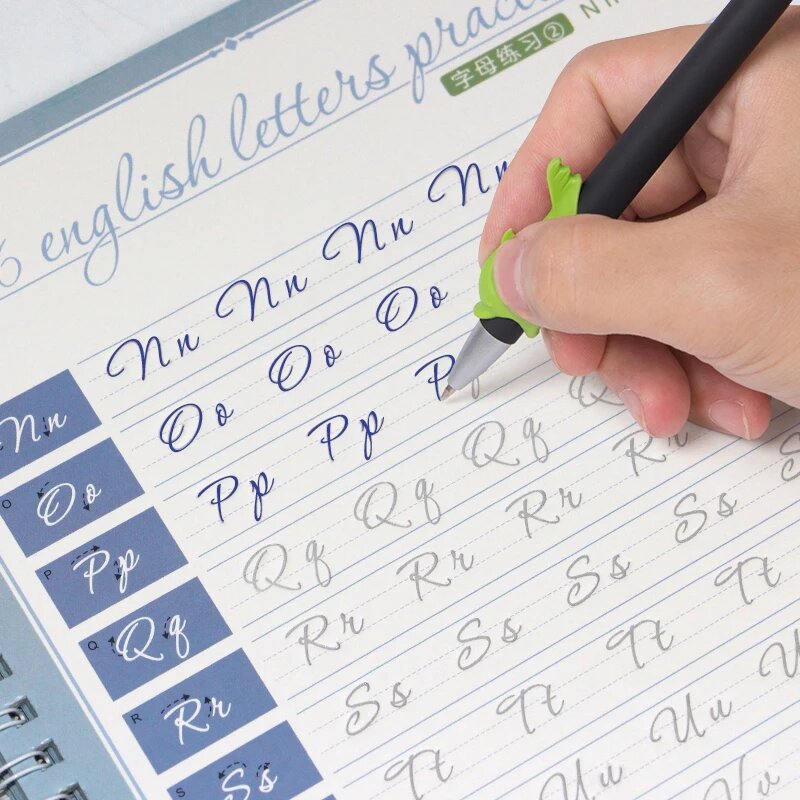 6 english letters prac
字母练习②
Nn Nn Nn Nn Nn
O Oo Oo Oo Oo
P Pp Pp Pp P
Q Qq Qq Qq Qq Q
R Rr Rr Rr Rr Rr
S Ss Ss Ss Ss Ss
Tt Tt Tt Tt
Uu Uu U
Vv